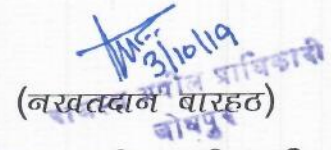 3/10/19
(नखतदान बारहठ)
राजस्व अपील प्राधिकारी
जोधपुर